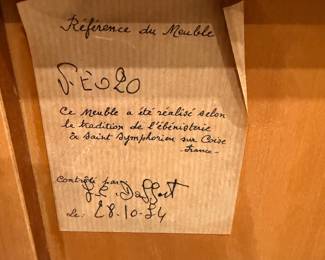 Référence du Meuble
Ce Meuble a été réalisé selon
la tradition de l'ébénisterie
En Saint Symphorien sur Coise
-France-
Contrôlé par
Le: 28-10-94